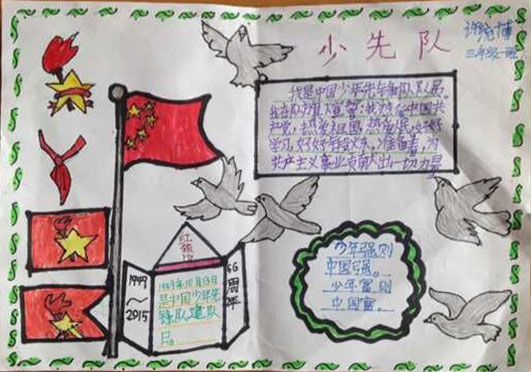 少先队
三年级一班
我是中国少年先锋队队员。
我在队旗下宣誓:我热爱中国共
产党,热爱祖国,热爱人民,好好
学习,好好锻炼,准备着,为
共产主义事业贡献出一切力量
红领巾
1949
~
2015
66周年
1949年10月13日
是中国少年先
锋队建队
日。
少年强则
中国强。
少年富则
中国富。